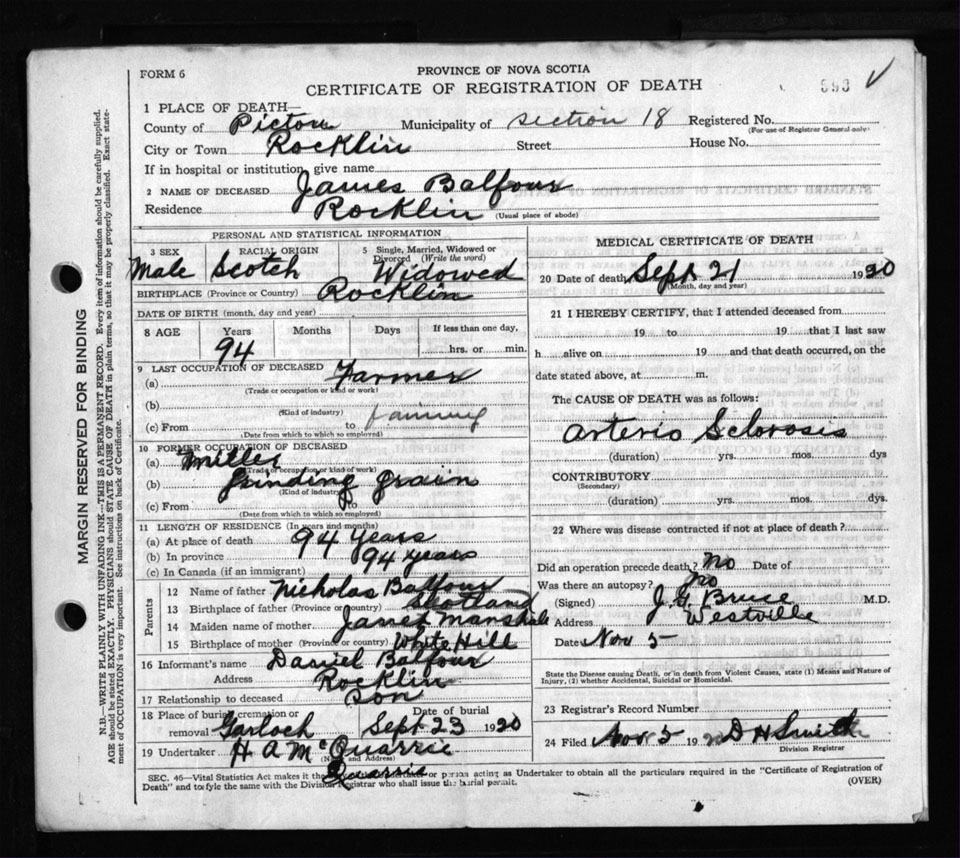 FORM 6
PROVINCE OF NOVA SCOTIA
CERTIFICATE OF REGISTRATION OF DEATH
1 PLACE OF DEATH—
County of Pictou Municipality of Section 18 Registered No.
(For use of Registrar General only)
City or Town Rocklin Street House No.
If in hospital or institution, give name
2 NAME OF DECEASED James Balfour
Residence Rocklin (Usual place of abode)
PERSONAL AND STATISTICAL INFORMATION
3 SEX Male
RACIAL ORIGIN Scotch
5 Single, Married, Widowed or Divorced (Write the word) Widowed
BIRTHPLACE (Province or Country) Rocklin
DATE OF BIRTH (month, day and year)
8 AGE Years 94 Months Days If less than one day, hrs. or min.
9 LAST OCCUPATION OF DECEASED
(a) Farmer
(Trade or occupation or kind or work)
(b) farming
(Kind of industry)
(c) From to
(Date from which to which so employed)
10 FORMER OCCUPATION OF DECEASED
(a) Miller
(Trade or occupation or kind of work)
(b) Grinding grain
(Kind of industry)
(c) From to
(Date from which to which so employed)
11 LENGTH OF RESIDENCE (In years and months)
(a) At place of death 94 years
(b) In province 94 years
(c) In Canada (if an immigrant)
Parents
12 Name of father Nicholas Balfour
13 Birthplace of father (Province or country) Scotland
14 Maiden name of mother Janet Marshall
15 Birthplace of mother (Province or country) White Hill
16 Informant's name Daniel Balfour
Address Rocklin
17 Relationship to deceased Son
18 Place of burial, cremation or removal Garloch
Date of burial Sept 23 1920
19 Undertaker H A McQuarrie
(Name and Address)
Quarrie
MEDICAL CERTIFICATE OF DEATH
20 Date of death Sept 21 1920
(Month, day and year)
21 I HEREBY CERTIFY, that I attended deceased from
19 to 19 that I last saw
h alive on 19 and that death occurred, on the
date stated above, at m.
The CAUSE OF DEATH was as follows:
Arterio Sclorosis
(duration) yrs. mos. dys
CONTRIBUTORY
(Secondary)
(duration) yrs. mos. dys.
22 Where was disease contracted if not at place of death?
Did an operation precede death? No Date of
Was there an autopsy? No
(Signed) J. G. Bruce M.D.
Address Westville
Date Nov 5
State the Disease causing Death, or in death from Violent Causes, state (1) Means and Nature of Injury, (2) whether Accidental, Suicidal or Homicidal.
23 Registrar's Record Number
24 Filed Nov 5 19 D H Smith
Division Registrar
SEC. 46—Vital Statistics Act makes it the or person acting as Undertaker to obtain all the particulars required in the "Certificate of Registration of
Death" and to fyle the same with the Division Registrar who shall issue the burial permit. (OVER)
MARGIN RESERVED FOR BINDING
N.B.—WRITE PLAINLY WITH UNFADING INK—THIS IS A PERMANENT RECORD. Every item of information should be carefully supplied.
AGE should be stated EXACTLY. PHYSICIANS should STATE CAUSE OF DEATH in plain terms, so that it may be properly classified. Exact state-
ment of OCCUPATION is very important. See instructions on back of Certificate.